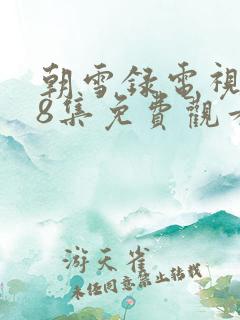 朝雪録電視
8集免費觀
游天雀
未经同意禁止转载